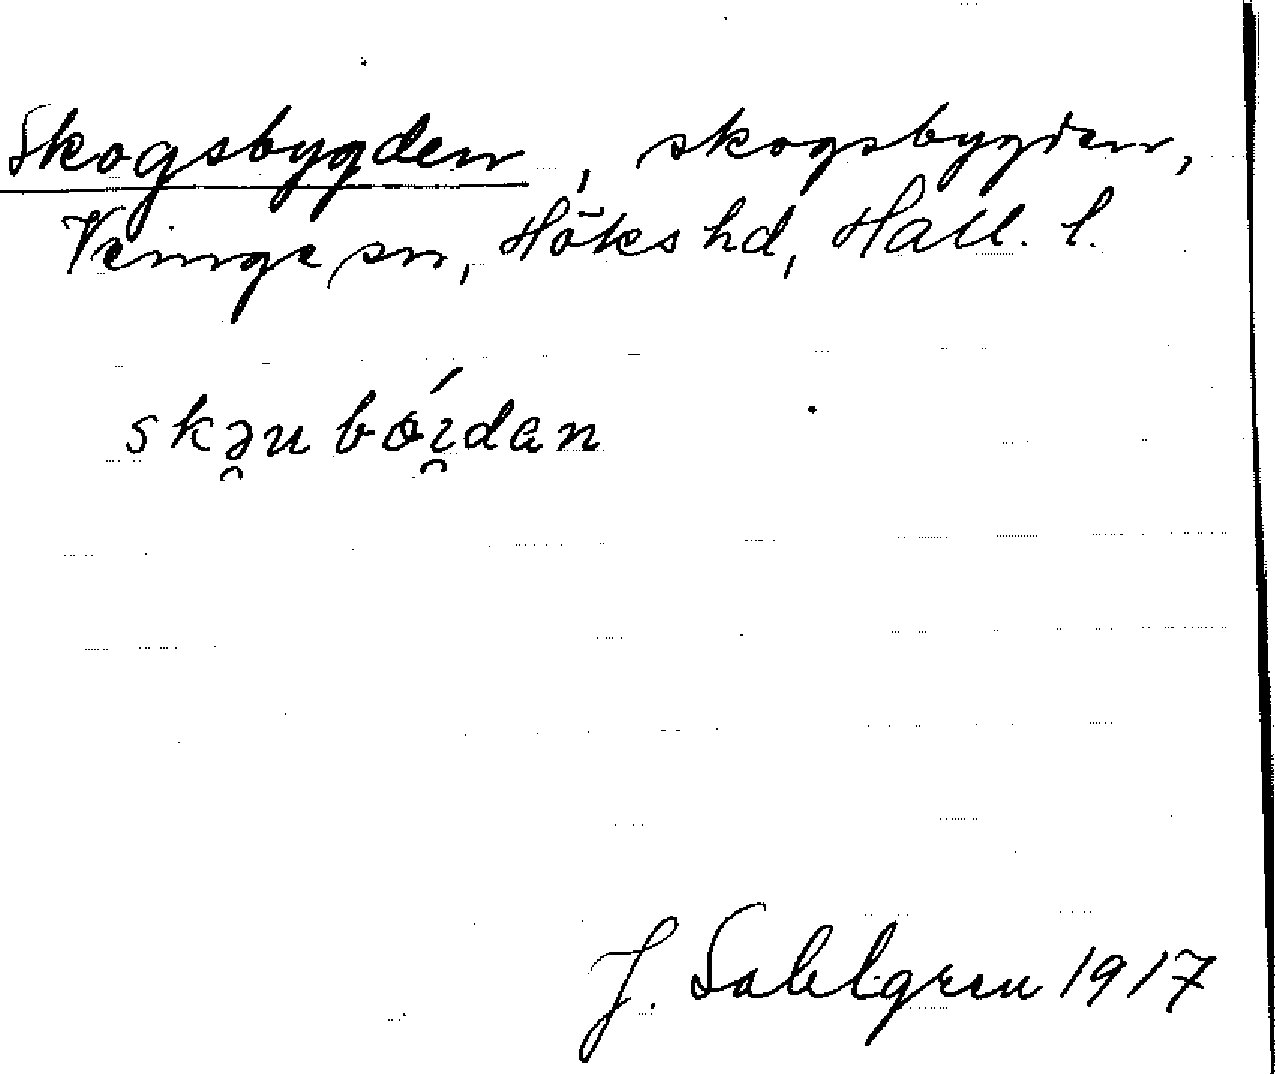 Skogsbygden, skogsbygden,
Veinge sn, Höks hd, Hall. l.
skə̯u bói̯dan
J. Sahlgren 1917